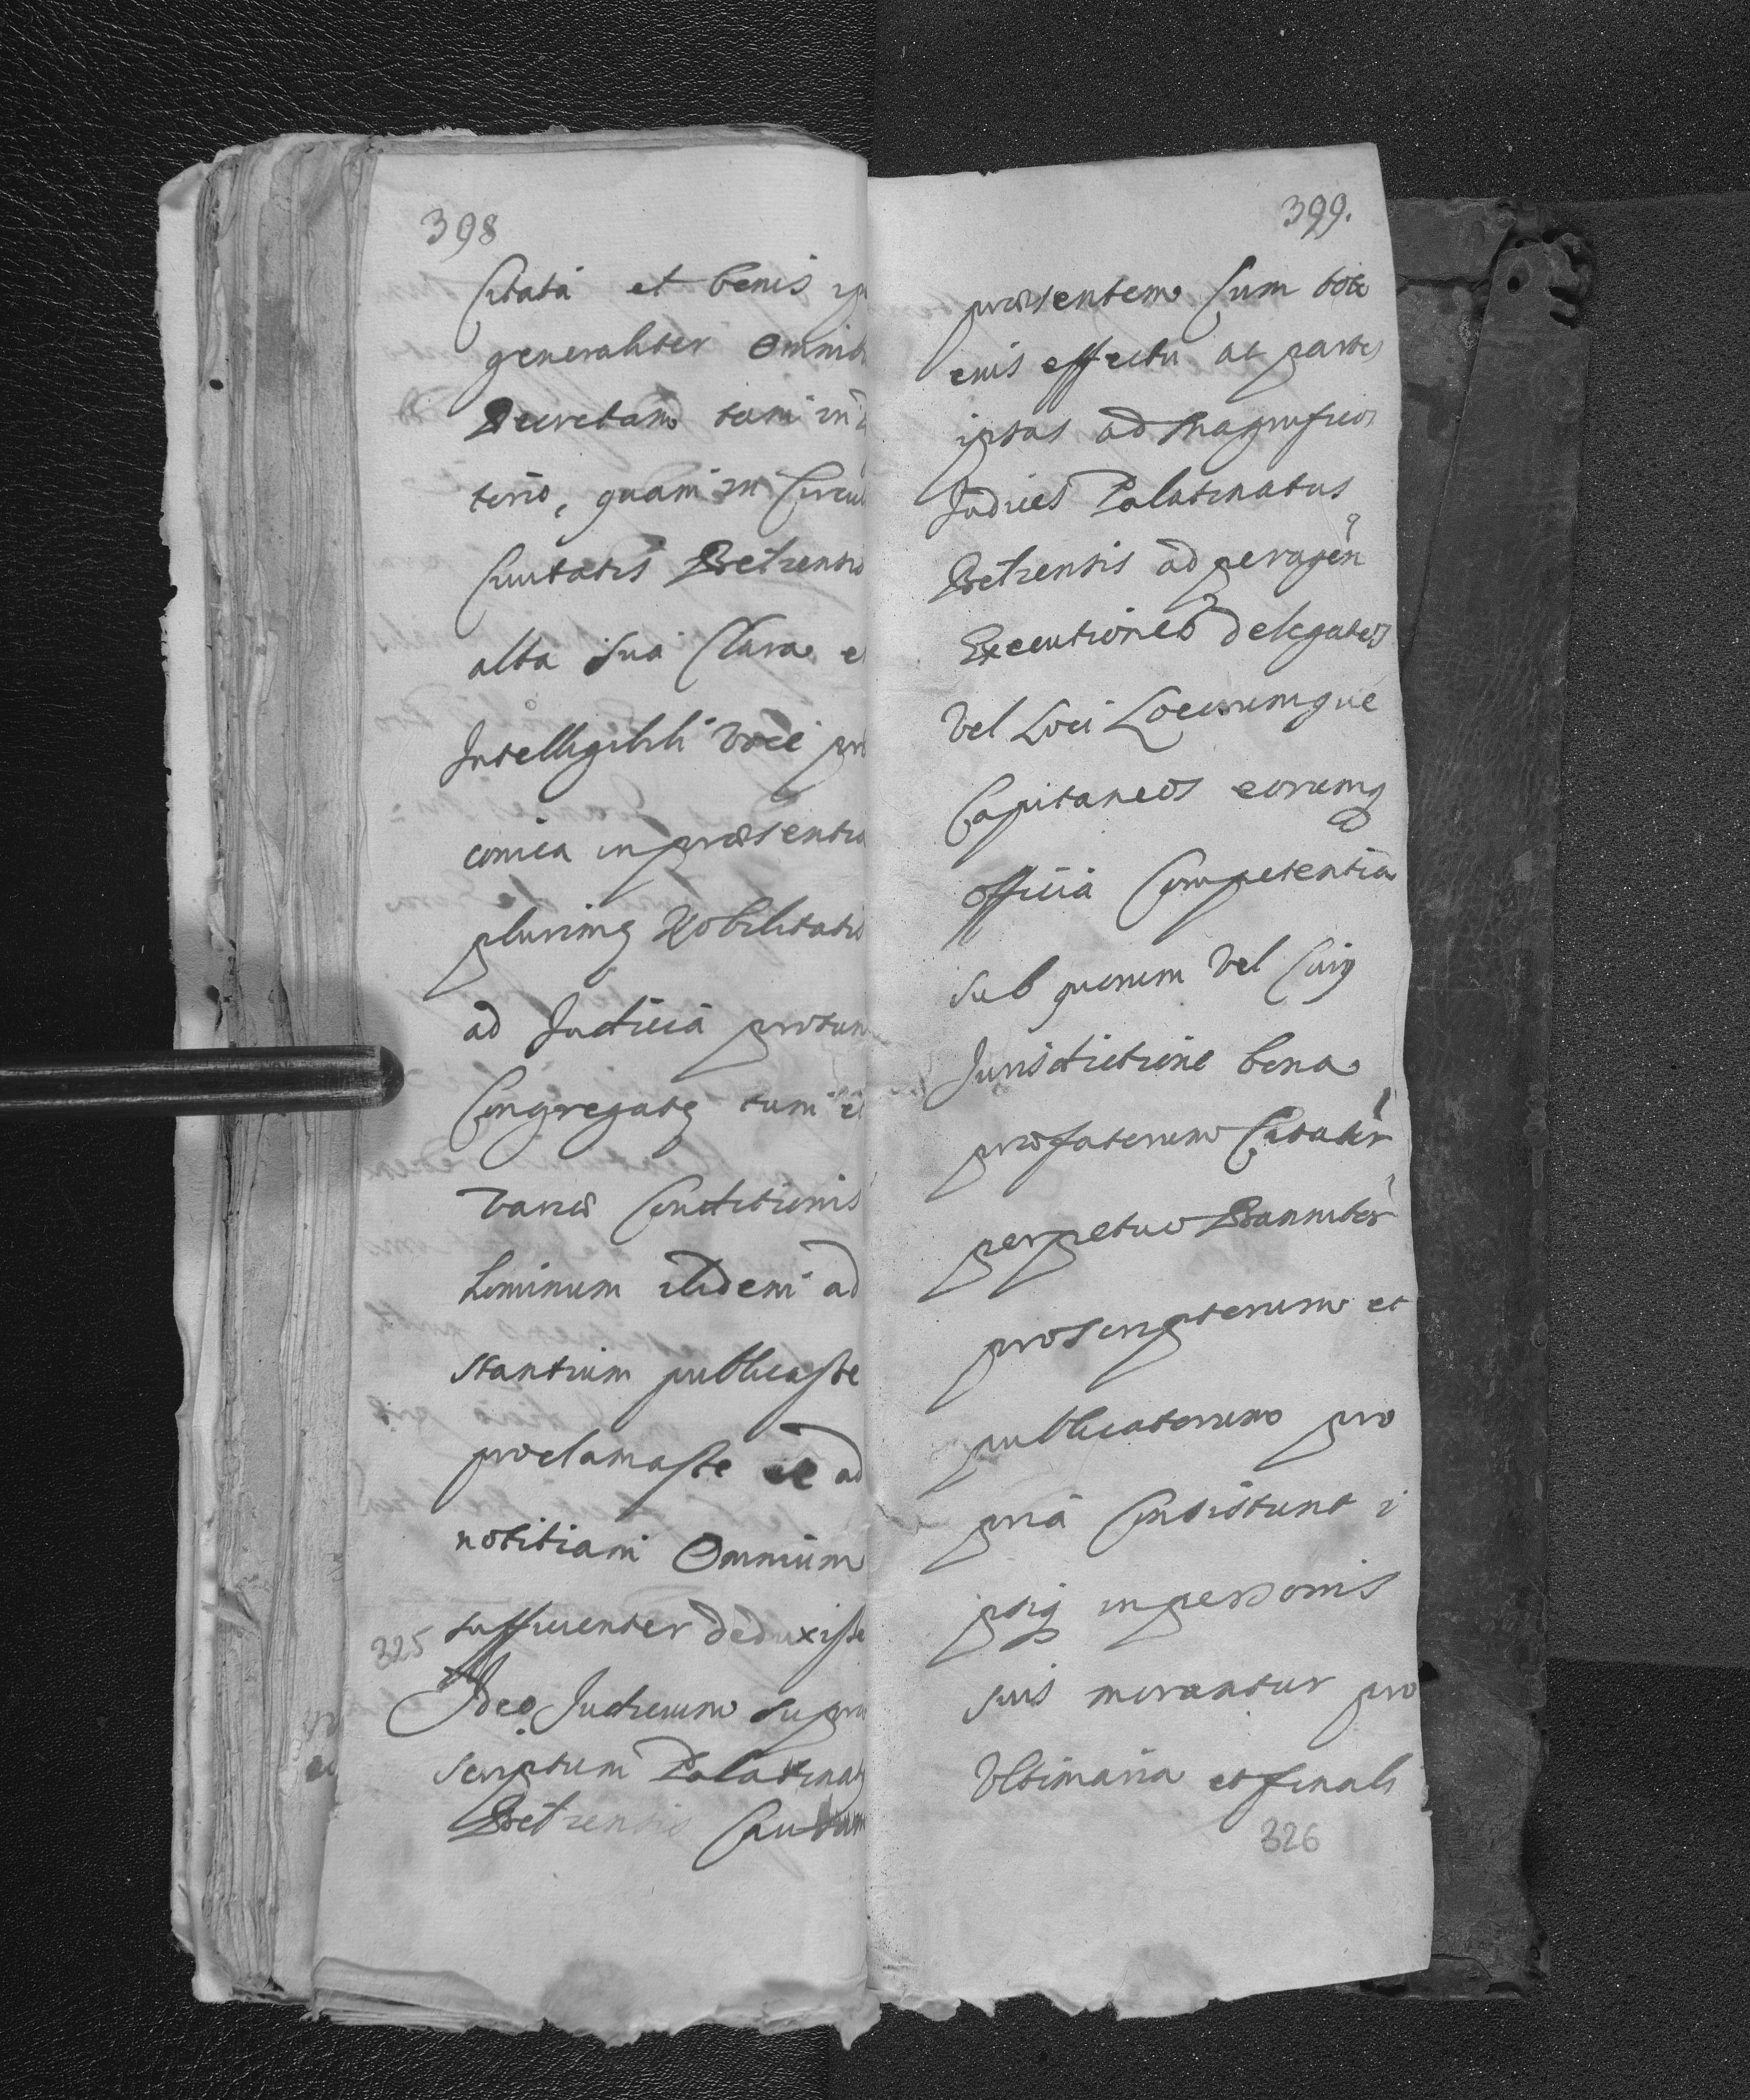 398
Citata et bonis
generaliter Omnib
Decretam tam in
terio, quam in Circul
Civitatis Betzensis
alta sua Clara et
Intelligibili voce pr
conica in præsentia
plurimę Nobilitatis
ad Judicia protun
Congregatę tum et
variæ Conditionis
hominum ibidem ad
stantium publicasse
proclamasse et ad
notitiam Omnium
sufficienter deduxisse
325
Ideo Judicium supra
scriptum Palatinatus
Betzensis Causam
399.
præsentem Cum toto
eius effectu ac partes
ipsas ad Magnificos
Judices Palatinatus
Betzensis ad peragen
Executiones delegatos
vel Loci Locorumque
Capitaneos eorumq
officia Competentia
sub quorum vel Cuiq
Jurisdictione bona
præfatorum Citator
perpetuo Bannitor
proscriptorum et
publicatorum pro
pria Consistunt i
psiq in personis
suis morantur pro
Ultimaria et finali
326